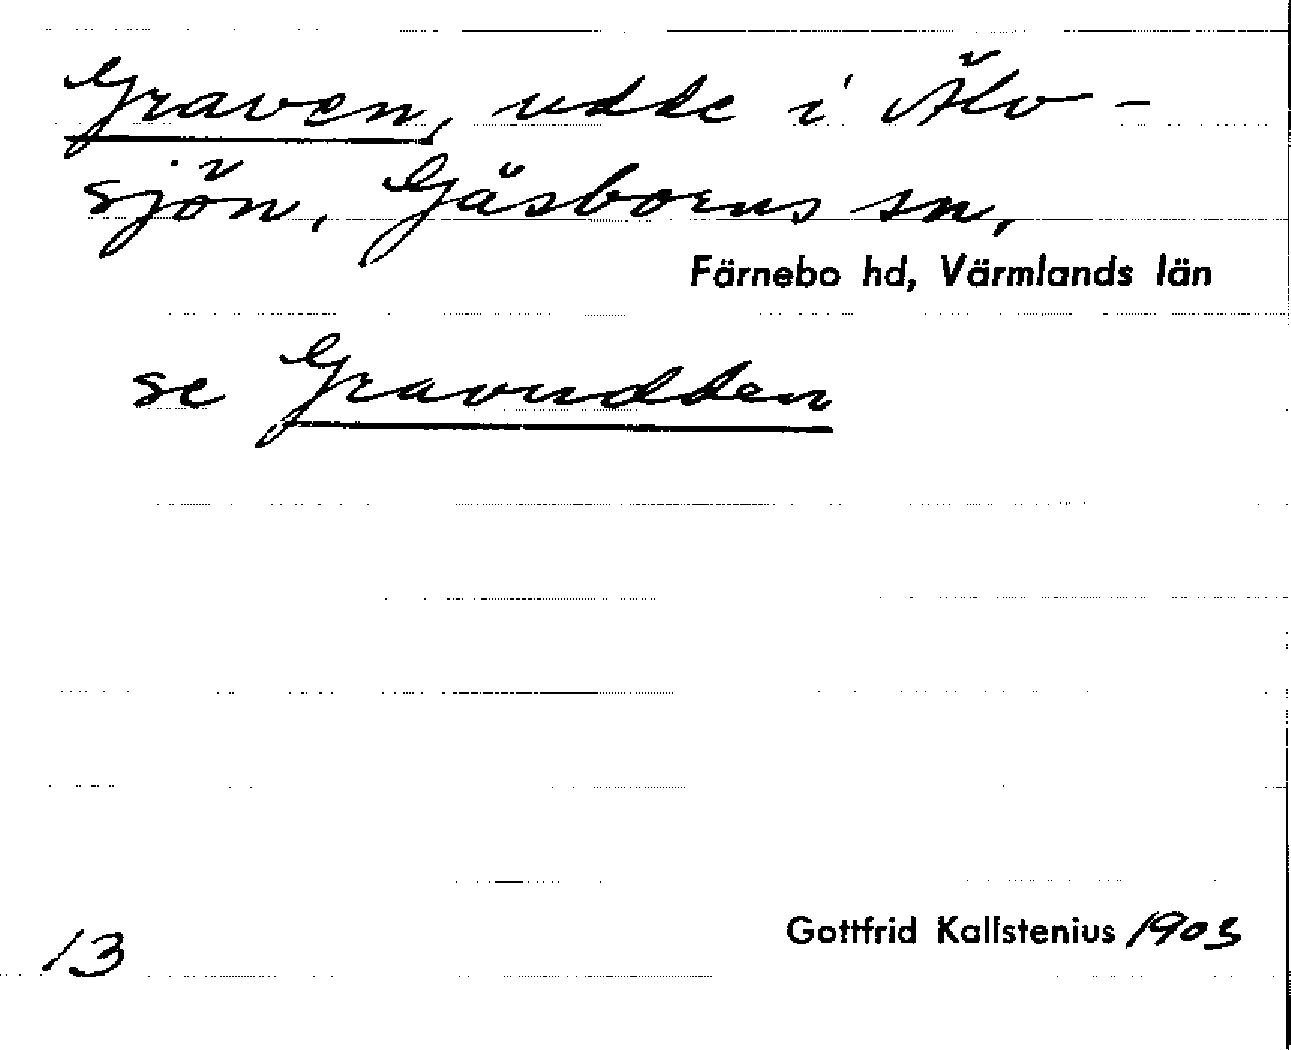 Graven, udde i Älv-
sjön, Gåsborns sn,
Färnebo hd, Värmlands län
se Gravudden
Gottfrid Kallstenius 1903
13